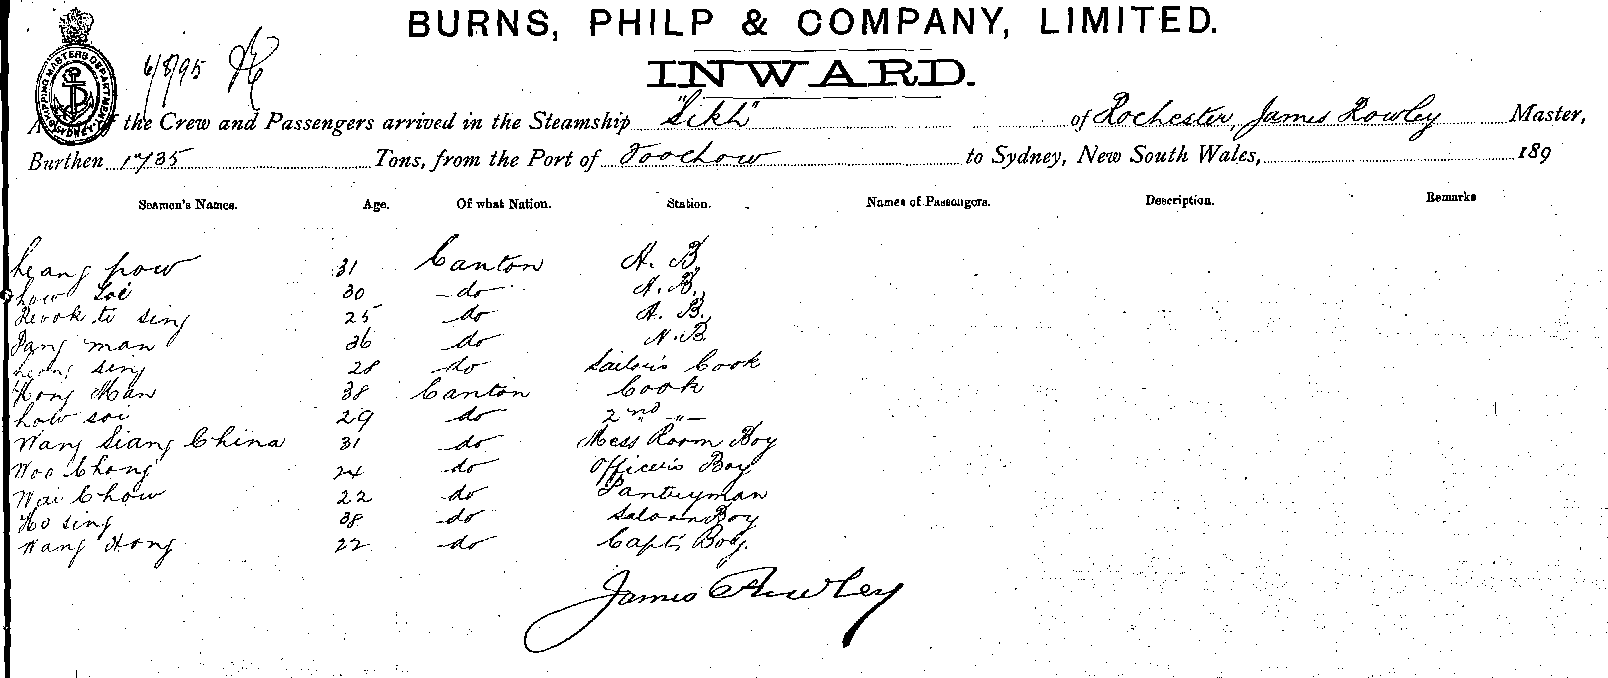 BURNS, PHILP & COMPANY, LIMITED.
INWARD.
SHIPPING MASTERS DEPARTMENT SYDNEY
6/8/95
A of the Crew and Passengers arrived in the Steamship "Sikh" of Rochester, James Rowley Master,
Burthen 1735 Tons, from the Port of Foochow to Sydney, New South Wales, 189
Seamen's Names. Age. Of what Nation. Station. Names of Passengers. Description. Remarks
Leang pow 31 Canton A. B.
how Soi 30 do A. B.
sing 25 do A. B.
man 36 do A. B.
Leong sing 28 do Sailor's Cook
Hong Man 38 Canton Cook
how soi 29 do 2nd -"-
Wang Siang China 31 do Mess Room Boy
Woo Chong 24 do Officer's Boy
Wai Chow 22 do Pantryman
Ho sing 38 do Saloon Boy
Wang Hong 22 do Capt's Boy.
James Rowley